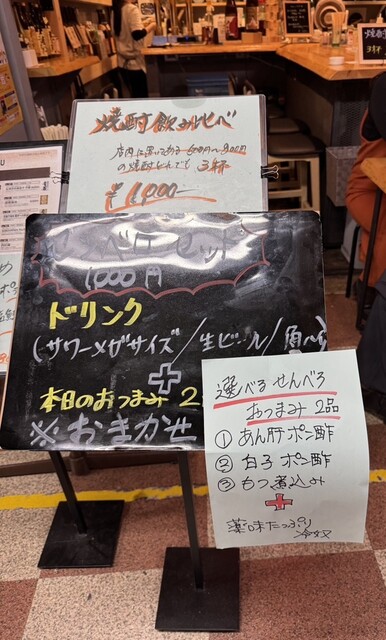 焼酎飲み比べ
店内に置いてある600円〜800円
の焼酎どれでも 3杯
¥1,000-
ベロセット
1000円
ドリンク
(サワーメガサイズ/生ビール/角ハイ
+
本日のおつまみ 2
※おまかせ
選べるせんべろ
おつまみ 2品
① あん肝ポン酢
② 白子ポン酢
③ もつ煮込み
+
薬味たっぷり
冷奴